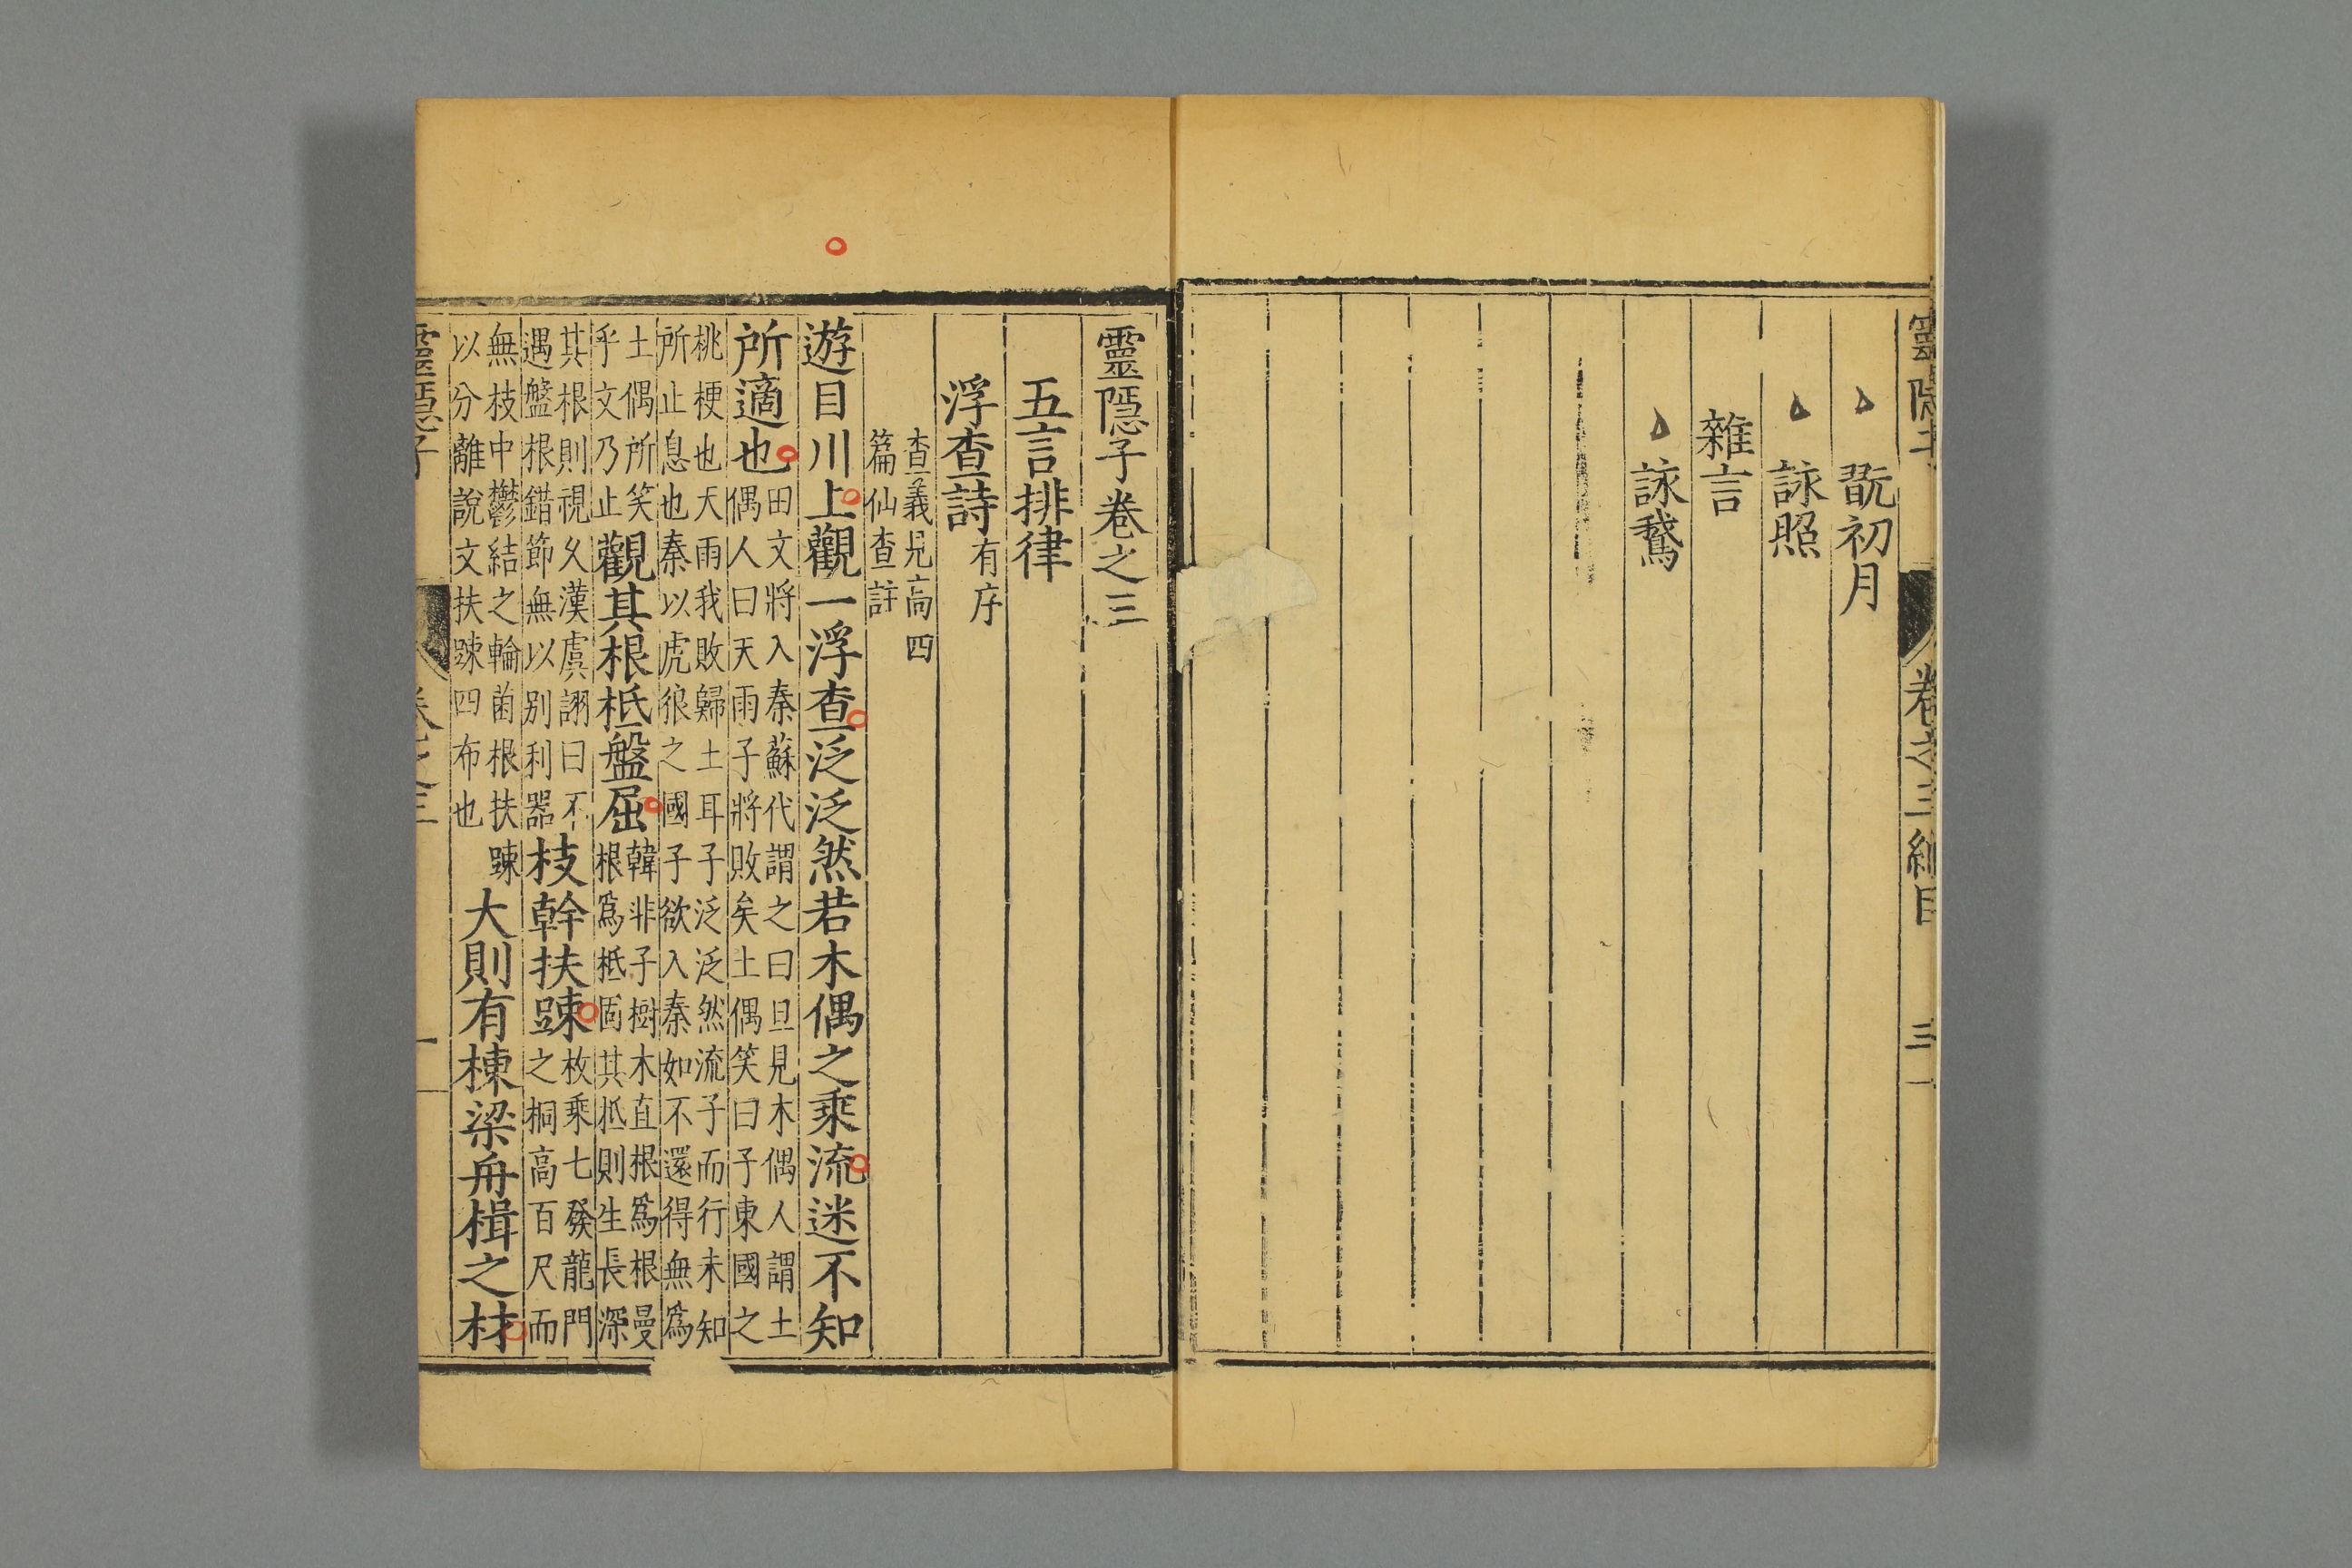 翫初月
詠照
雜言
詠鵞
靈隱子卷之三
五言排律
浮查詩有序
查義見高四
篇仙查註
遊目川上觀一浮查泛泛然若木偶之乘流迷不知
所適也田文將入秦蘇代謂之曰旦見木偶人謂土
偶人曰天雨子將敗矣土偶笑曰子東國之
桃梗也天雨我敗歸土耳子泛泛然流子而行未知
所止息也秦以虎狼之國子欲入秦如不還得無爲
土偶所笑
乎文乃止觀其根柢盤屈韓非子樹木直根爲根曼
根爲柢固其柢則生長深
其根則視久漢虞詡曰不
遇盤根錯節無以別利器枝幹扶踈枚乘七發龍門
之桐高百尺而
無枝中鬱結之輪菌根扶踈
以分離說文扶踈四布也大則有棟梁舟楫之材
靈隱子
卷之三
一